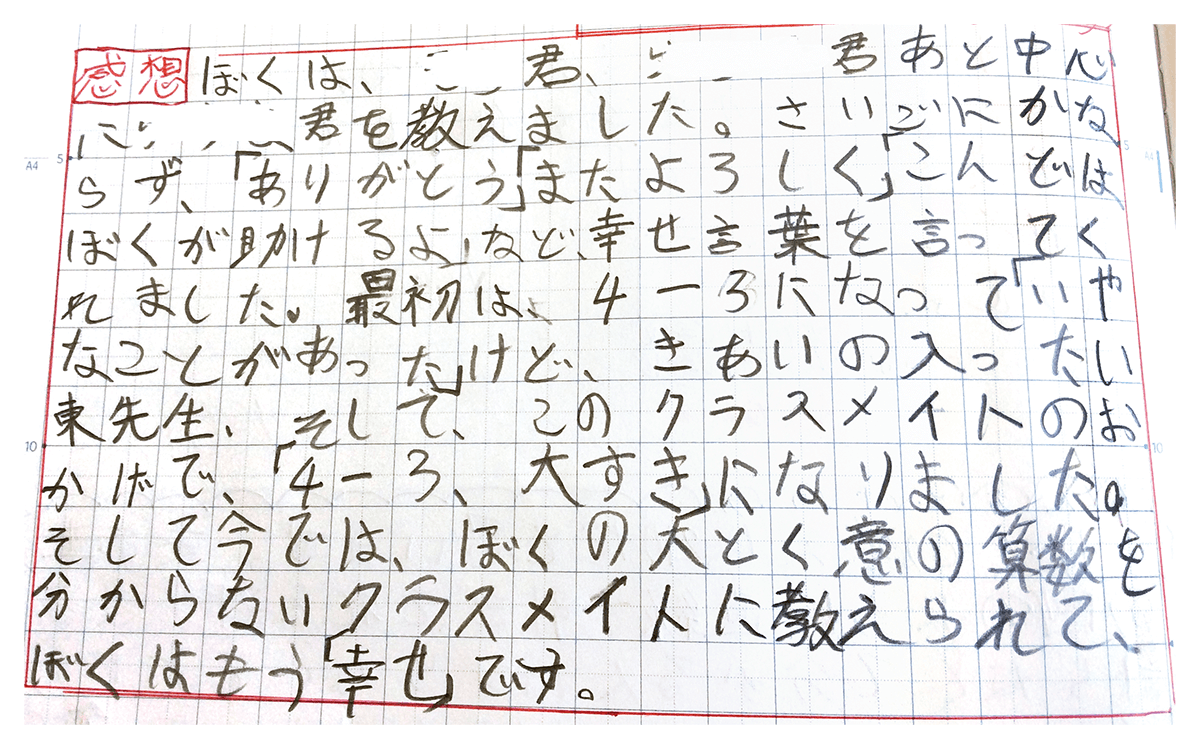 感想 ぼくは、 君、 君あと中心
に 君を教えました。さいごにかな
らず、「ありがとう」「またよろしく」「こんどは
ぼくが助けるよ」など、幸せ言葉を言ってく
れました。最初は、4一ろになって「いや
なことがあった」けど、きあいの入ったい
東先生、そして、このクラスメイトのお
かげで、「4一ろ、大すき」になりました。
そして今では、ぼくの大とく意の算数を
分からないクラスメイトに教えられて、
ぼくはもう「幸せ」です。
A4 5 10 A4 5 10